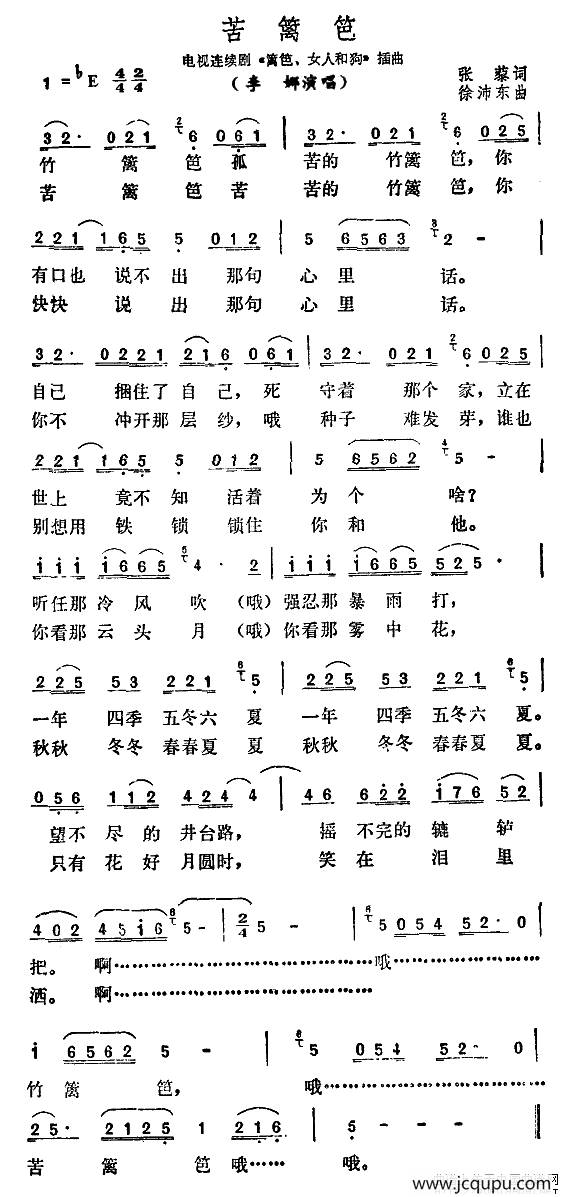 苦篱笆
电视连续剧《篱笆、女人和狗》插曲
1=♭E 4/4 2/4
（李娜演唱）
张藜词
徐沛东曲
3 2· 0 2 1 2/τ 6 0 6 1 | 3 2· 0 2 1 2/τ 6 0 2 5
竹 篱 笆 孤 苦的 竹篱 笆，你
苦 篱 笆 苦 苦的 竹篱 笆，你
2 2 1 1 6 5 5 0 1 2 | 5 6 5 6 3 3/τ 2 -
有口也 说不 出 那句 心里 话。
快快 说 出 那句 心里 话。
3 2· 0 2 2 1 2 1 6 0 6 1 | 3 2· 0 2 1 2/τ 6 0 2 5
自己 捆住了 自己，死 守着 那个 家，立在
你不 冲开那 层纱，哦 种子 难发 芽，谁也
2 2 1 1 6 5 5 0 1 2 | 5 6 5 6 2 4/τ 5 -
世上 竟不 知 活着 为个 啥？
别想用 铁 锁 锁住 你和 他。
i i i i 6 6 5 5/τ 4· 2 | i i i i 6 6 5 5 2 5·
听任那 冷风 吹（哦）强忍那 暴雨 打，
你看那 云头 月（哦）你看那 雾中 花，
2 2 5 5 3 2 2 1 6/τ 5 | 2 2 5 5 3 2 2 1 6/τ 5
一年 四季 五冬六 夏 一年 四季 五冬六 夏。
秋秋 冬冬 春春夏 夏 秋秋 冬冬 春春夏 夏。
0 5 6 1 1 2 4 2 4 4 | 4 6 6 2 2 i 7 6 5 2
望不 尽的 井台路， 摇 不完的 辘 轳
只有 花好 月圆时， 笑在 泪里
4 0 2 4 5 i 6 6/τ 5 - | 2/4 5 - | 6/τ 5 0 5 4 5 2· 0
把。 啊………………………………哦………………
洒。 啊………………………………
i 6 5 6 2 5 - | 6/τ 5 0 5 4 5 2· 0
竹 篱 笆， 哦………………
2 5· 2 1 2 5 1 2 1 6 | 5 - - -
苦 篱 笆 哦…… 哦。
www.jcqupu.com